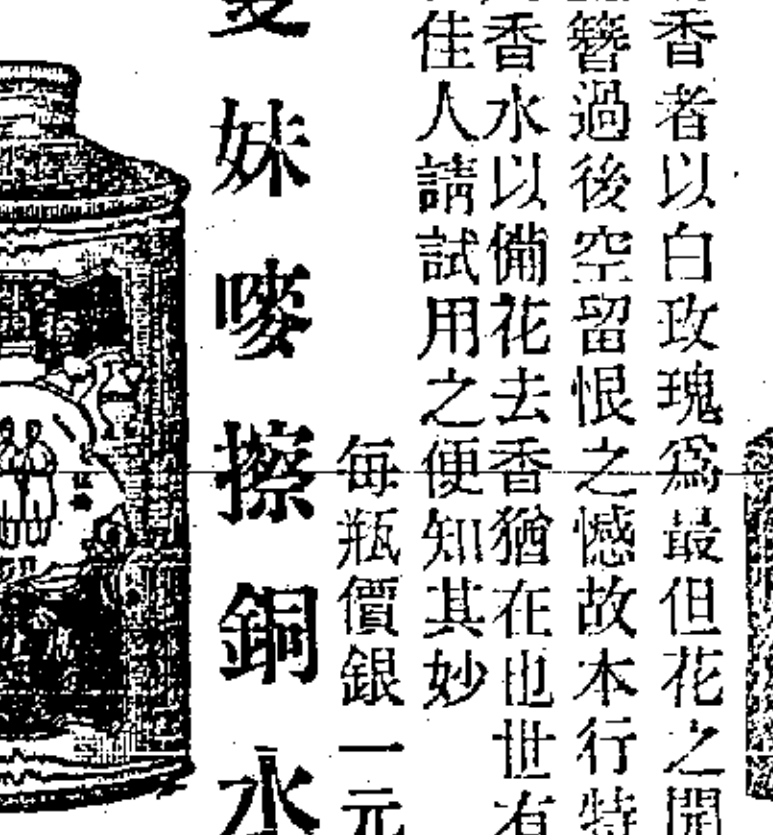 香者以白玫瑰爲最但花之開
簪過後空留恨之憾故本行特
香水以備花去香猶在也世有
佳人請試用之便知其妙
每瓶價銀一元
雙妹嘜擦銅水